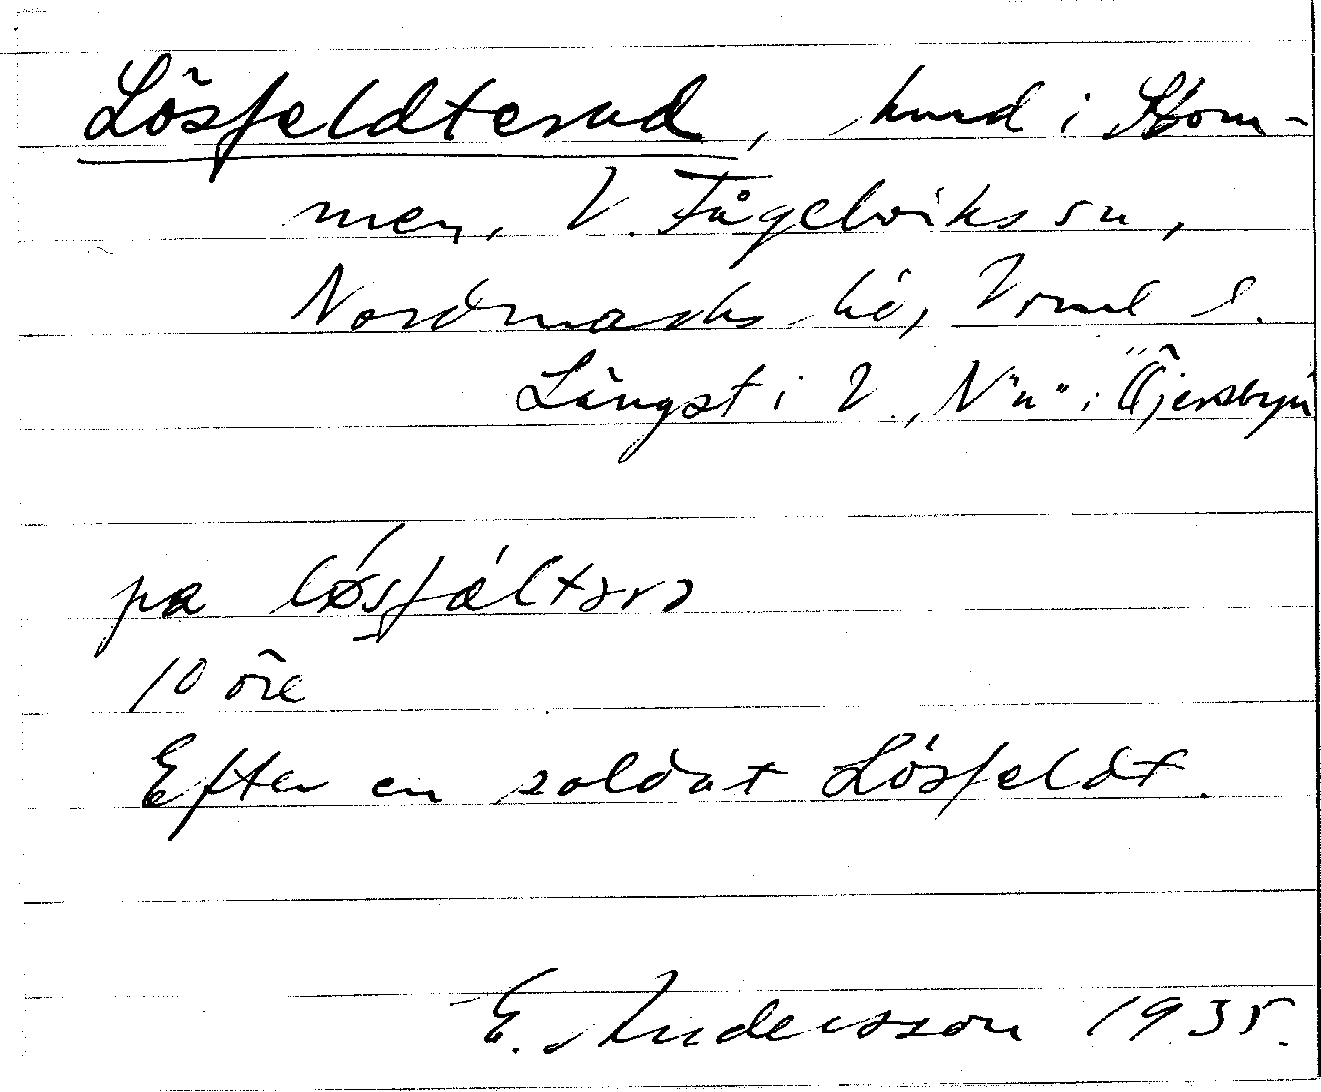 Lösfeldterud, hmd i Stom-
men, V. Fågelviks sn,
Nordmarks hd, Vrml l.
Längst i V., N"n" i Öjersbyn
pa lǿsfáltərə
10 öre
Efter en soldat Lösfeldt.
E. Andersson 1935.